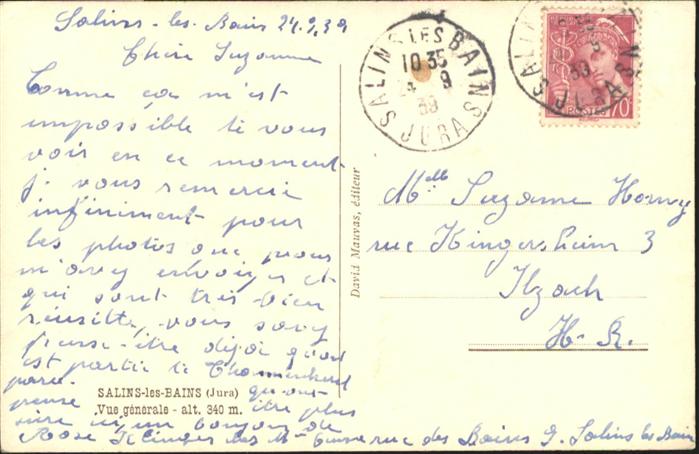 Salins-les-Bains 24.9.39
Chère Suzanne
Comme ça m'est
impossible de vous
voir en ce moment
je vous remercie
infiniment pour
les photos que vous
m'avez envoyées et
qui sont très bien
réussite, vous savez
peut-être déjà qu'on
est partie de
parce qu'ont
pense être plus
sûre ici un bonjour de
Rose Klinger les Mlle rue des Bains 9. Salins les Bains
SALINS-les-BAINS (Jura)
Vue générale - alt. 340 m.
David Mauvas, éditeur
SALINS LES BAINS
10 35
24 9
39
JURA
SALINS
9
39
JURA
POSTES
70c
Melle Suzanne Horny
rue Kingersheim 3
Ilzach
H-R.